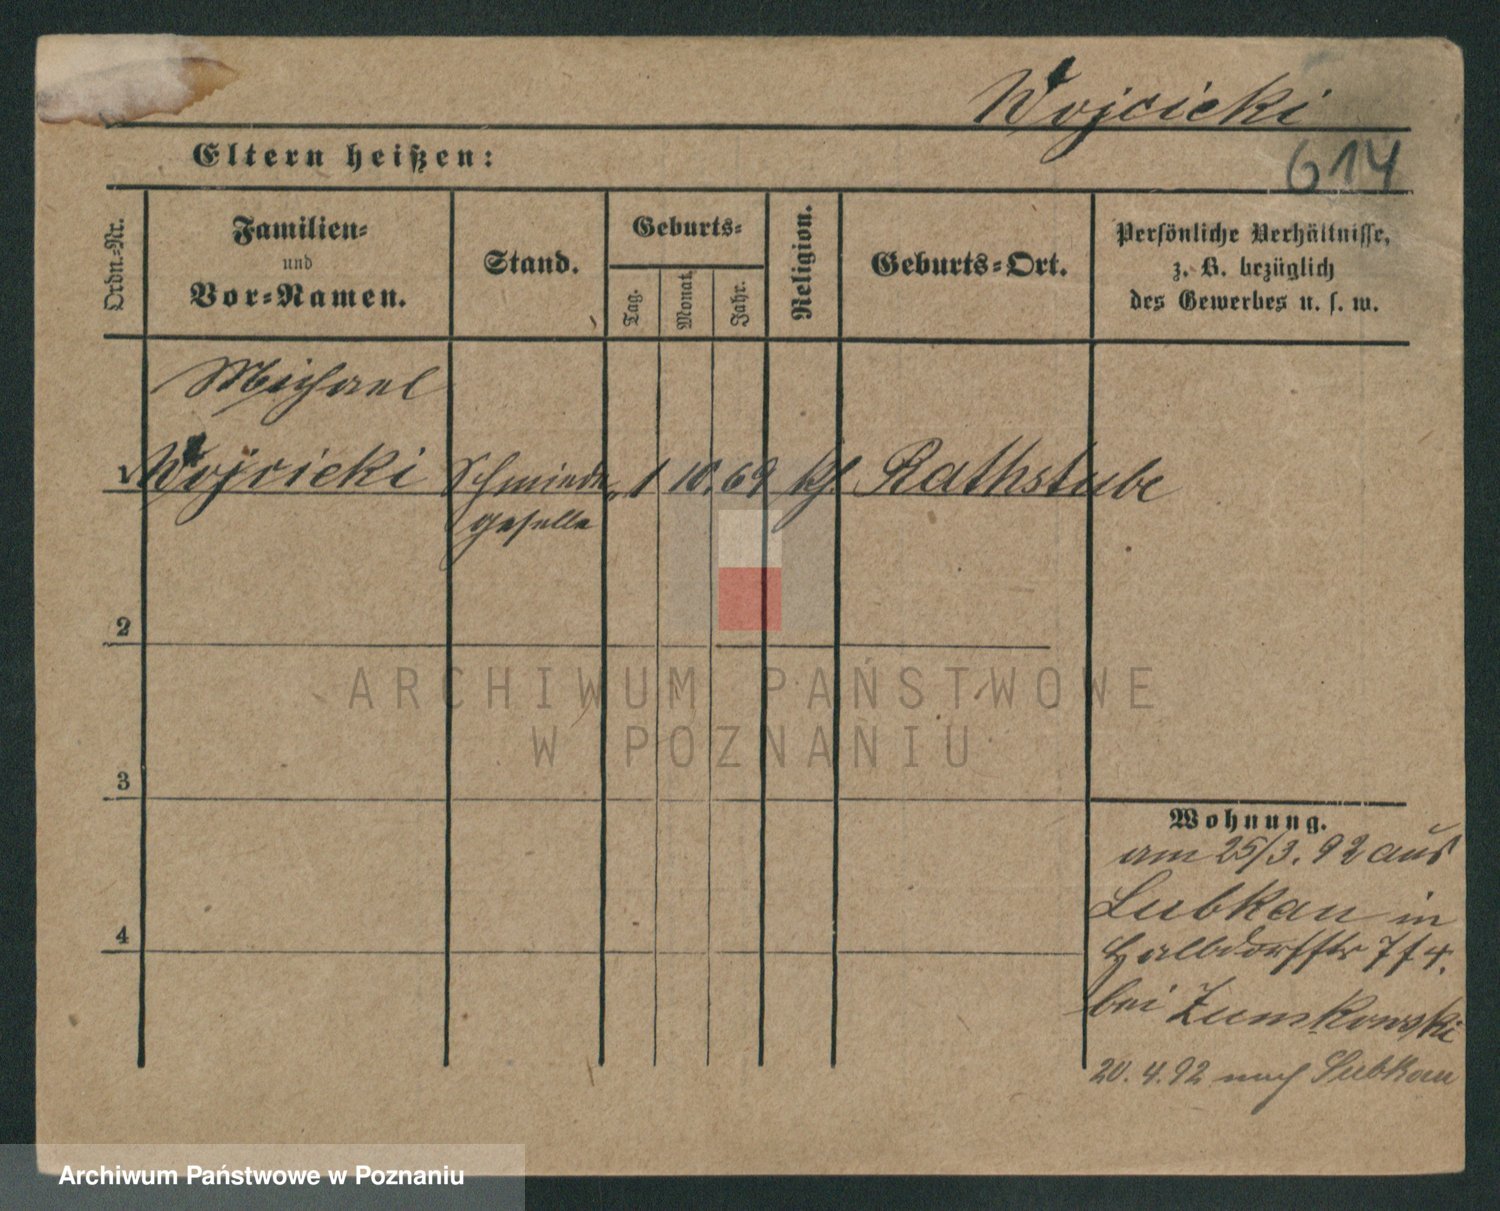 Wojcicki
Eltern heißen:
614
Ordn.-Nr.
Familien-
und
Vor-Namen.
Stand.
Geburts-
Tag.
Monat.
Jahr.
Religion.
Geburts-Ort.
Persönliche Verhältnisse,
z. B. bezüglich
des Gewerbes u. s. w.
Michael
1 Wojcicki Schmiede 1 10. 69 kh Rathstube
geselle
2
ARCHIWUM PAŃSTWOWE
W POZNANIU
3
Wohnung.
am 25/3. 92 aus
Lubkau in
4
Halbdorfstr
bei Zumkowski
20. 4. 92 nach Lubkau
Archiwum Państwowe w Poznaniu